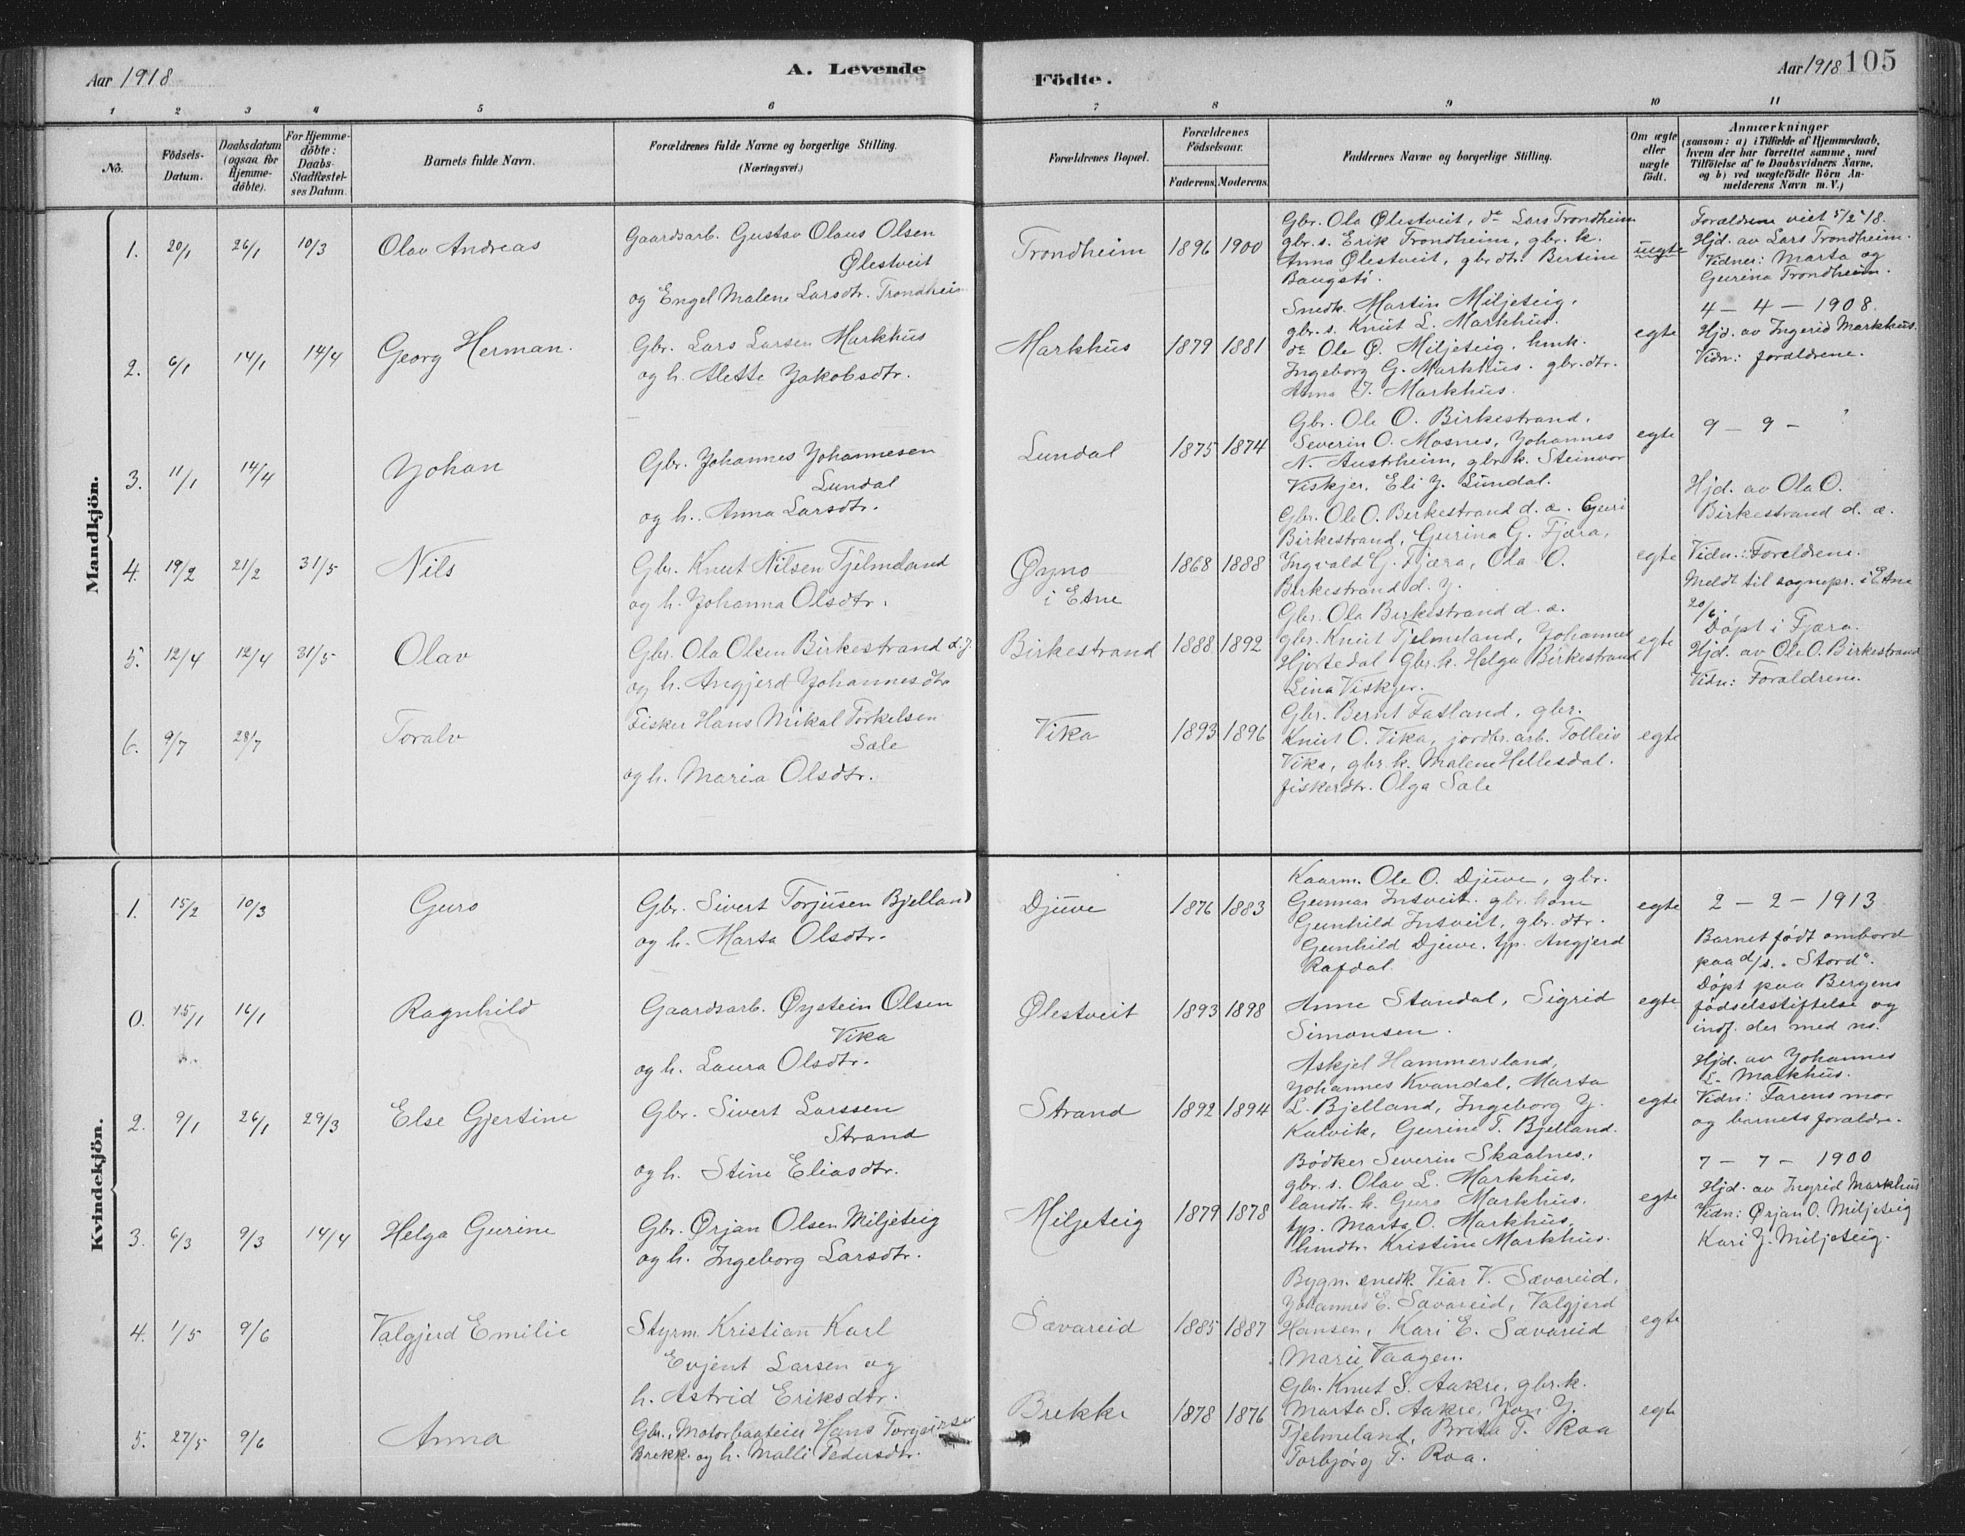 Aar 1918
A. Levende
Födte.
Aar 1918 105
1 2 3 4 5 6 7 8 9 10 11
No.
Födsels-Datum.
Daabsdatum (ogsaa for Hjemmedöbte).
For Hjemmedöbte: Daabs-Stadfæstelses Datum.
Barnets fulde Navn.
Forældrenes fulde Navne og borgerlige Stilling.
(Næringsvei.)
Forældrenes Bopæl.
Forældrenes Födselsaar.
Faderens. Moderens.
Faddernes Navne og borgerlige Stilling.
Om ægte eller uægte födt.
Anmærkninger
(saasom: a) i Tilfælde af Hjemmedaab, hvem der har forrettet samme, med Tilföielse af to Daabsvidners Navne, og b) ved uægtefödte Börn Anmelderens Navn m. V.)
Mandkjön.
1. 20/1 26/1 10/3 Olav Andreas
Gaardsarb. Gustav Olaus Olsen
Ølestveit
og Engel Malene Larsdtr. Trondheim
Trondheim 1896 1900
Gbr. Ola Ølestveit, do Lars Trondheim
gbr. s. Erik Trondheim, gbr. k.
Anna Ølestveit, gbr. dtr. Bertine
Baugstö.
uegte
Forældrene viet 5/2 '18.
Hjd. av Lars Trondheim.
Vidner: Marta og
Gurina Trondheim.
2. 6/1 14/1 14/4 Georg Herman.
Gbr. Lars Larsen Markhus
og h. Alette Jakobsdtr.
Markhus 1879 1881
Snedk. Martin Miljeteig,
gbr. s. Knut L. Markhus.
do Ole Ø. Miljeteig. hmk.
Ingeborg G. Markhus. gbr. dtr.
Anna J. Markhus.
egte
4 - 4 - 1908.
Hjd. av Ingerid Markhus.
Vidn: forældrene.
3. 11/1 14/4 Johan
Gbr. Johannes Johannesen
Lundal
og h. Anna Larsdtr.
Lundal 1875 1874
Gbr. Ole O. Birkestrand,
Severin O. Mosnes, Johannes
N. Austrheim, gbr. k. Steinvor
Viskjer. Eli J. Lundal.
egte
9 - 9 -
4. 19/2 21/2 31/5 Nils
Gbr. Knut Nilsen Tjelmeland
og h. Johanna Olsdtr.
Øyno
i Etne
1868 1888
Gbr. Ole O. Birkestrand d. æ. Guri
Birkestrand, Gurina G. Fjæra,
Ingvald G. Fjæra, Ola O.
Birkestrand d. y.
egte
Hjd. av Ola O.
Birkestrand d. æ.
Vidn.: Foreldrene.
Meldt til sognepr. i Etne
20/6.
Döpt i Fjæra.
5. 12/4 12/4 31/5 Olav
Gbr. Ola Olsen Birkestrand d. y.
og h. Angjerd Johannesdtr
Birkestrand 1888 1892
Gbr. Ola Birkestrand d. æ.
gbr. Knut Tjelmeland, Johannes
Hjortedal Gbr. k. Helga Birkestrand
Lina Viskjer.
egte
Hjd. av Ole O. Birkestrand
Vidn: Forældrene.
6. 9/7 28/7 Toralv
Fisker Hans Mikal Torkelsen
Sæle
og h. Maria Olsdtr.
Vika 1893 1896
Gbr. Bernt Fatland, gbr.
Knut O. Vika, jordbr. arb. Tolleiv
Vika, gbr. k. Malene Hellesdal.
fiskerdtr. Olga Sæle
egte
Kvindekjön.
1. 15/2 10/3 Guro
Gbr. Sivert Torjusen Bjelland
og h. Marta Olsdtr.
Djuve 1876 1883
Kaarm. Ole O. Djuve, gbr.
Gunnar Intveit. gbr. kone
Gunhild Intveit, gbr. dtr.
Gunhild Djuve. tjp. Angjerd
Rafdal.
egte
2 - 2 - 1913
0. 15/1 16/1 Ragnhild
Gaardsarb. Øystein Olsen
Vika
og h. Laura Olsdtr.
Ølestveit 1893 1898
Anne Standal, Sigrid
Simonsen.
egte
Barnet födt ombord
paa d/s. "Stord".
Döpt paa Bergens
födselsstiftelse og
indf. der med no.
2. 9/1 26/1 29/3 Else Gjertine
Gbr. Sivert Larssen
Strand
og h. Stine Eliasdtr.
Strand 1892 1894
Askjel Hammersland,
Johannes Kvandal, Marta
L. Bjelland, Ingeborg J.
Kalvik, Gurine T. Bjelland.
egte
Hjd. av Johannes
L. Markhus.
Vidn: Farens mor
og barnets forældre.
3. 6/3 9/3 14/4 Helga Gurine
Gbr. Ørjan Olsen Miljeteig
og h. Ingeborg Larsdtr.
Miljeteig 1879 1878
Bødker Severin Skaalnes,
gbr. s. Olav L. Markhus,
landh. h. Guro Markhus.
tjp. Marta O. Markhus,
hmdtr. Kristine Markhus.
egte
7 - 7 - 1900
Hjd. av Ingrid Markhus
Vidn: Ørjan O. Miljeteig
Kari J. Miljeteig.
4. 1/5 9/6 Valgjerd Emilie
Styrm. Kristian Karl
Evjent Larsen og
h. Astrid Eriksdtr.
Sævareid 1885 1887
Bygn. snedk. Viar V. Sævareid,
Johannes E. Sævareid, Valgjerd
Hansen, Kari E. Sævareid
Marie Vaagen.
egte
5. 27/5 9/6 Anna
Gbr., Motorbaateier Hans Torgeirsen
Brekk. og h. Malli Pedersdtr.
Brekke 1878 1876
Gbr. Knut S. Aakre, gbr. k.
Marta S. Aakre, Jon J.
Tjelmeland, Brita T. Raa
Torbjørg T. Roa.
egte